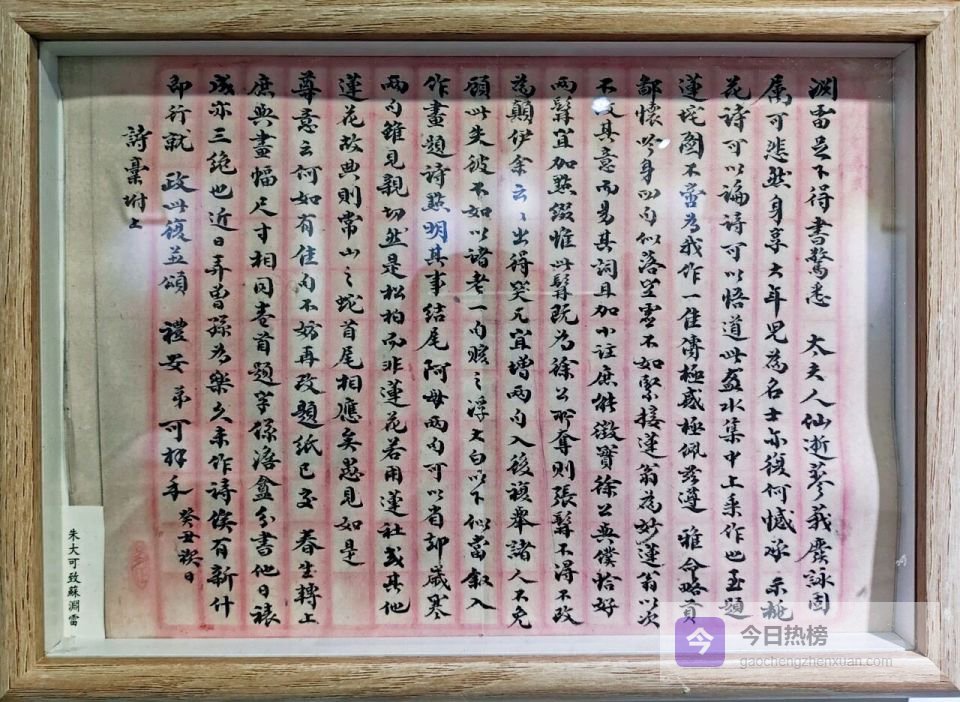 淵雷足下得書驚悉　太夫人仙逝蓼莪廢詠固
屬可悲然身享大年兒為名士亦復何憾承　示
花詩可以論詩可以悟道此盦水集中上乘作也玉題
蓮垞圖不啻為我作一佳傳極感極佩茲遵　雅命略貢
鄙懷以身以句似落空靈不如緊接蓮翁為妙蓮翁以次
不改其意而易其詞且加小註庶能徵實徐公與僕恰好
兩髯宜加點綴惟此髯既為徐公所奪則張髯不得不改
為顛伊余云云出得突兀宜增兩句入後複舉諸人不免
顧此失彼不如以諸老一句賅之浮大白以下似當敘入
作畫題詩點明其事結尾阿毋兩句可以省卻歲寒
兩句雖見親切然是松柏而非蓮花若用蓮社或其他
蓮花故典則常山之蛇首尾相應矣愚見如是
尊意云何如有佳句不妨再改題紙已交　春生轉上
庶與畫幅尺寸相同卷首題字係語盦分書他日裱
成亦三絕也近日弄曾孫為樂久未作詩俟有新什
即行就　政此復並頌　禮安　弟可拜手　癸丑
詩稾坿上
朱大可致蘇淵雷
今日热榜
gaochengzhenxuan.com